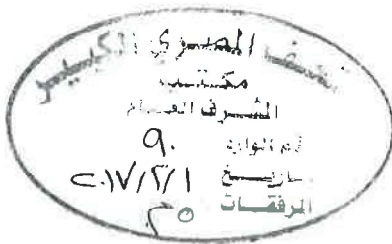 المتحف المصري الكبير
مكتب
المشرف العام
رقم الوارد ٩٠
تاريخ ٢٠١٧/٢/١
المرفقات